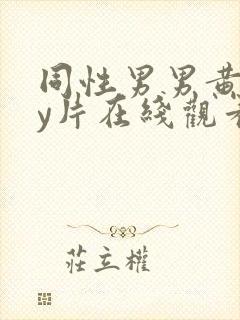 同性男男黄
y片在綫觀看
莊立權